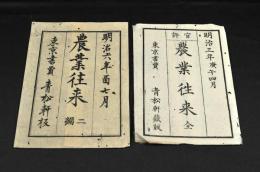 明治六年酉七月
農業往来
二
東京書賈 青松軒
明治三年庚午四月
官許
農業往来 全
東京書賈 青松軒